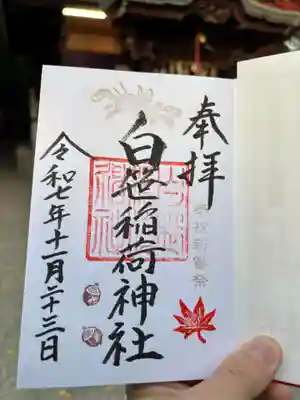 奉拝
白笹稲荷神社
令和七年十一月二十三日